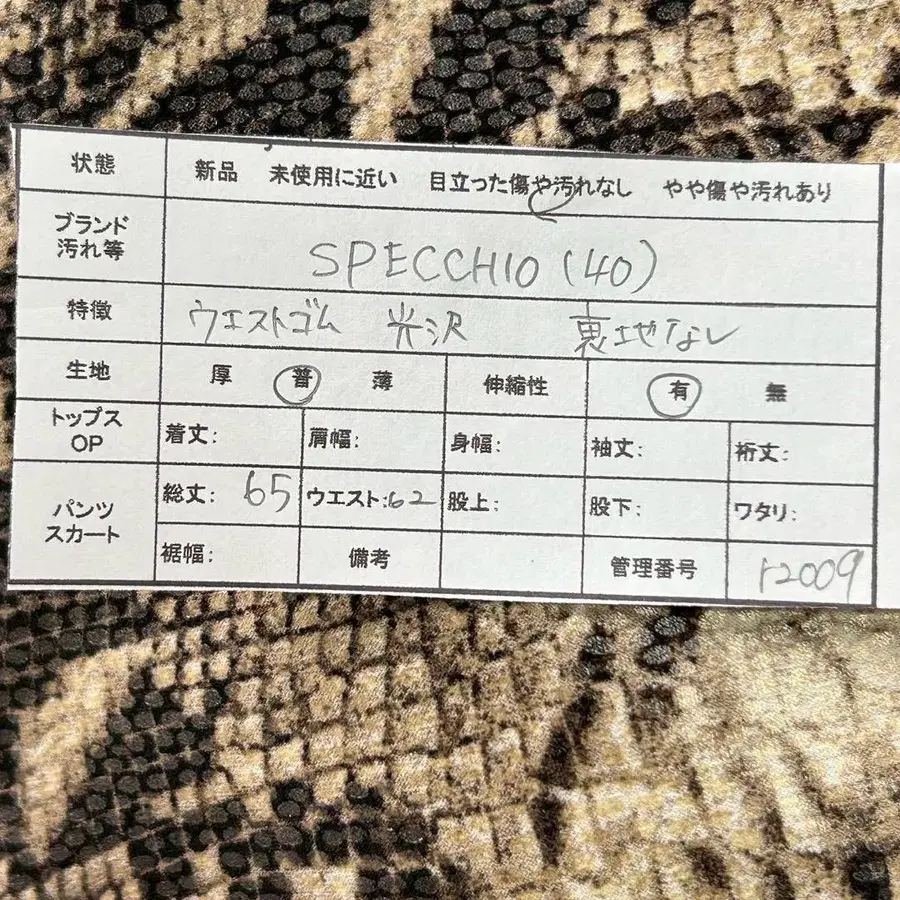 状態 新品 未使用に近い 目立った傷や汚れなし やや傷や汚れあり
ブランド
汚れ等 SPECCHIO (40)
特徴 ウエストゴム 光沢 裏地なし
生地 厚 普 薄 伸縮性 有 無
トップス
OP 着丈: 肩幅: 身幅: 袖丈: 裄丈:
パンツ
スカート 総丈: 65 ウエスト:62 股上: 股下: ワタリ:
裾幅: 備考 管理番号 r2009